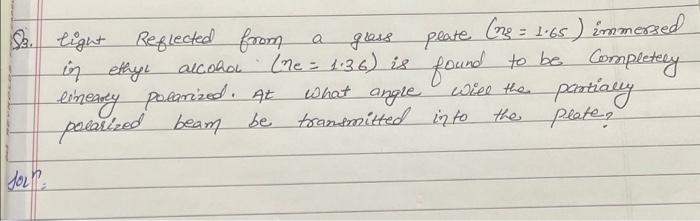 Q3. Light Reflected from a glass plate (ng = 1.65) immersed
in ethyl alcohol (ne = 1.36) is found to be Completely
linearly polarized. At what angle will the partially
polarized beam be transmitted into the plate?
Solⁿ: